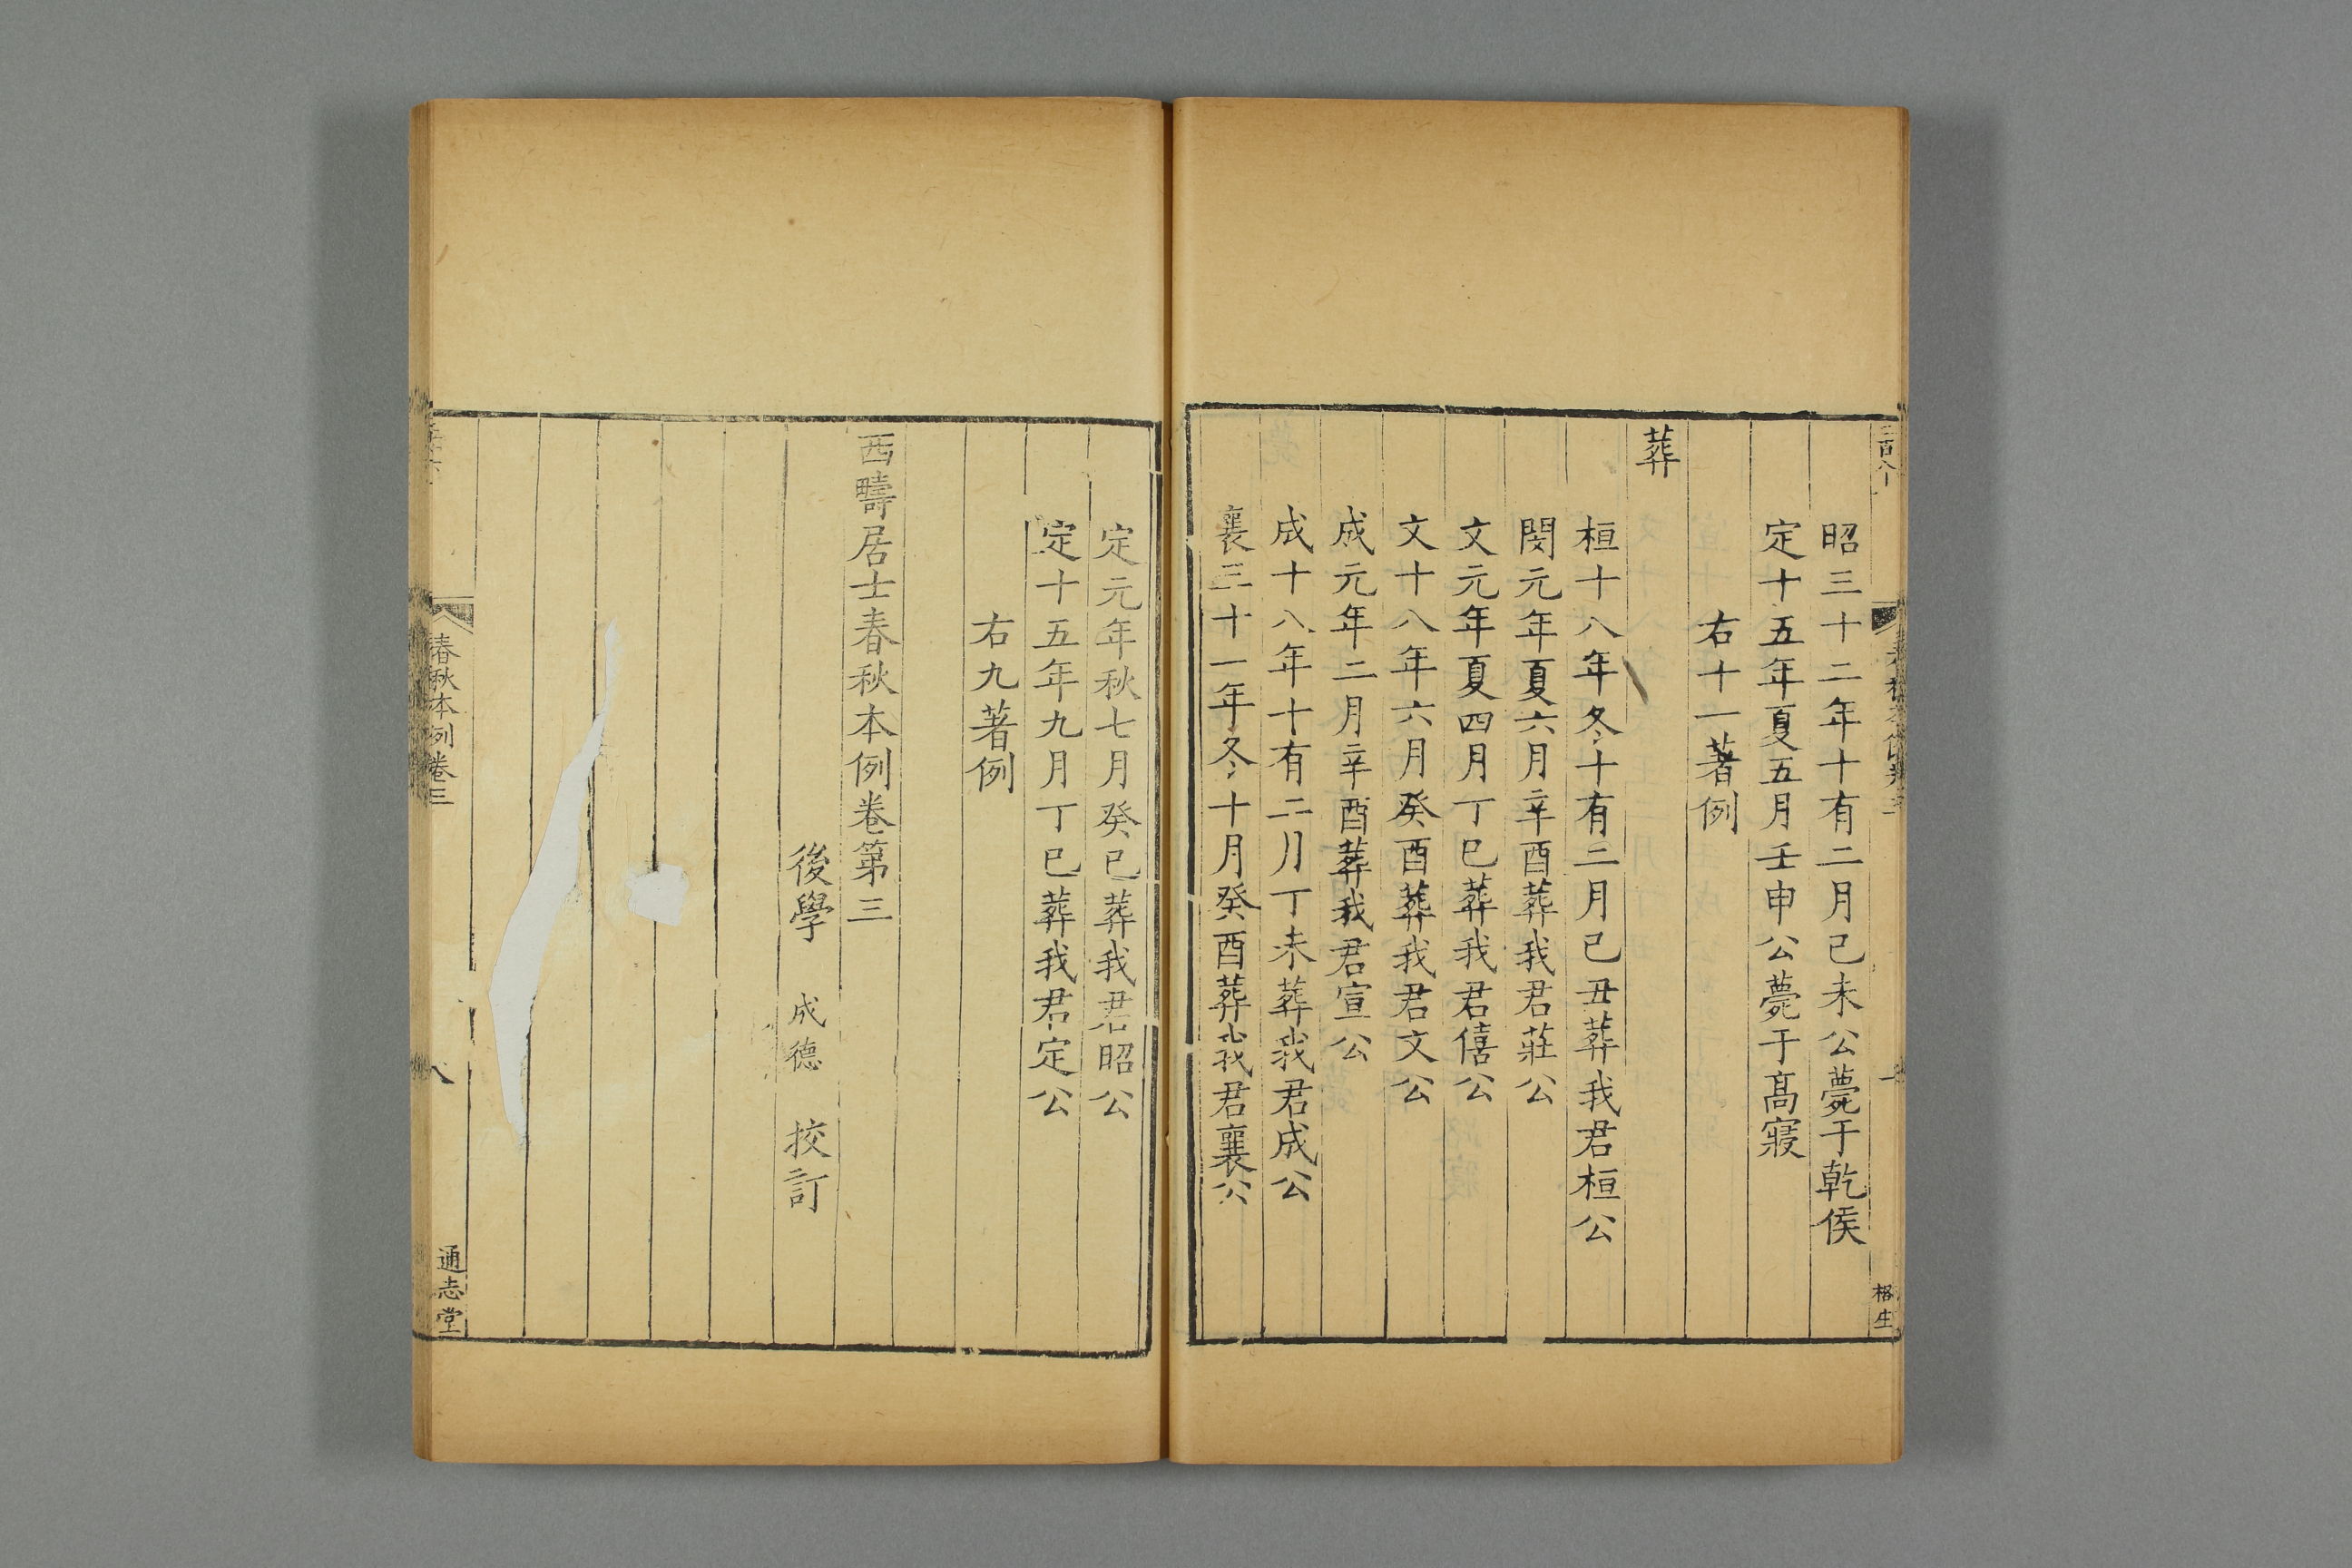 昭三十二年十有二月己未公薨于乾侯
定十五年夏五月壬申公薨于高寢
右十一著例
葬
桓十八年冬十有二月己丑葬我君桓公
閔元年夏六月辛酉葬我君莊公
文元年夏四月丁巳葬我君僖公
文十八年六月癸酉葬我君文公
成元年二月辛酉葬我君宣公
成十八年十有二月丁未葬我君成公
襄三十一年冬十月癸酉葬我君襄公
定元年秋七月癸巳葬我君昭公
定十五年九月丁巳葬我君定公
右九著例
西疇居士春秋本例卷第三
後學 成德 挍訂
春秋本例卷三
八
通志堂